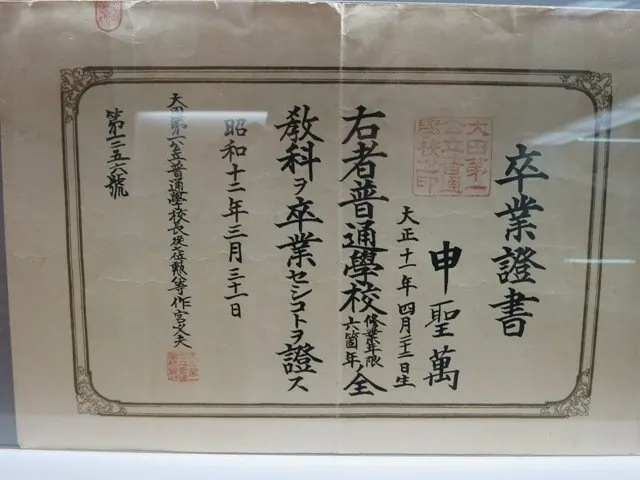 卒業證書
大田第一
公立普通
學校之印
申聖萬
大正十一年四月二十二日生
右者普通學校修業年限六箇年ノ全
教科ヲ卒業セシコトヲ證ス
昭和十二年三月三十一日
大田第一公立普通學校長從七位勲八等作宮父夫
第一二五六號